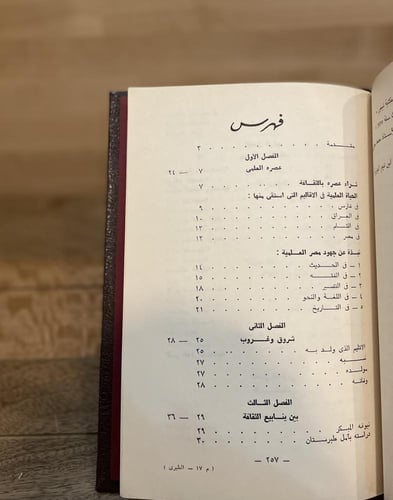 فهرس
مقدمة . . . . . . . . ٣
الفصل الأول
عصره العلمى ٧ — ٢٤
ثراء عصره بالثقافة . . . . . ٧
الحياة العلمية فى الأقاليم التى استقى منها :
فى فارس . . . . . . . . ٩
فى العراق . . . . . . . . ١٠
فى الشام . . . . . . . . ١٣
فى مصر . . . . . . . . ١٣
نبذة عن جهود مصر العلمية :
١ — فى الحديث . . . . . . . ١٤
٢ — فى الفقه . . . . . . . ١٥
٣ — فى التفسير . . . . . . . ١٨
٤ — فى اللغة والنحو . . . . . . ٢٠
٥ — فى التاريخ . . . . . . . ٢١
الفصل الثانى
شروق وغروب ٢٥ — ٢٨
الاقليم الذى ولد به . . . . . . ٢٥
نسبه . . . . . . . . ٢٧
مولده . . . . . . . . ٢٧
وفاته . . . . . . . . ٢٨
الفصل الثالث
بين ينابيع الثقافة ٢٩ — ٣٦
نبوغه المبكر . . . . . . . ٢٩
دراسته بآمل طبرستان . . . . . ٣٠
— ٢٥٧ —
( م ١٧ — الطبرى )